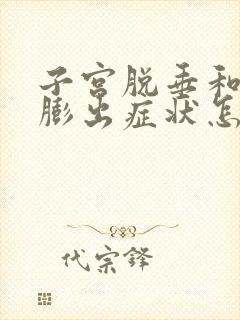 子宫脱垂和
膨出症状怎
代宗锋